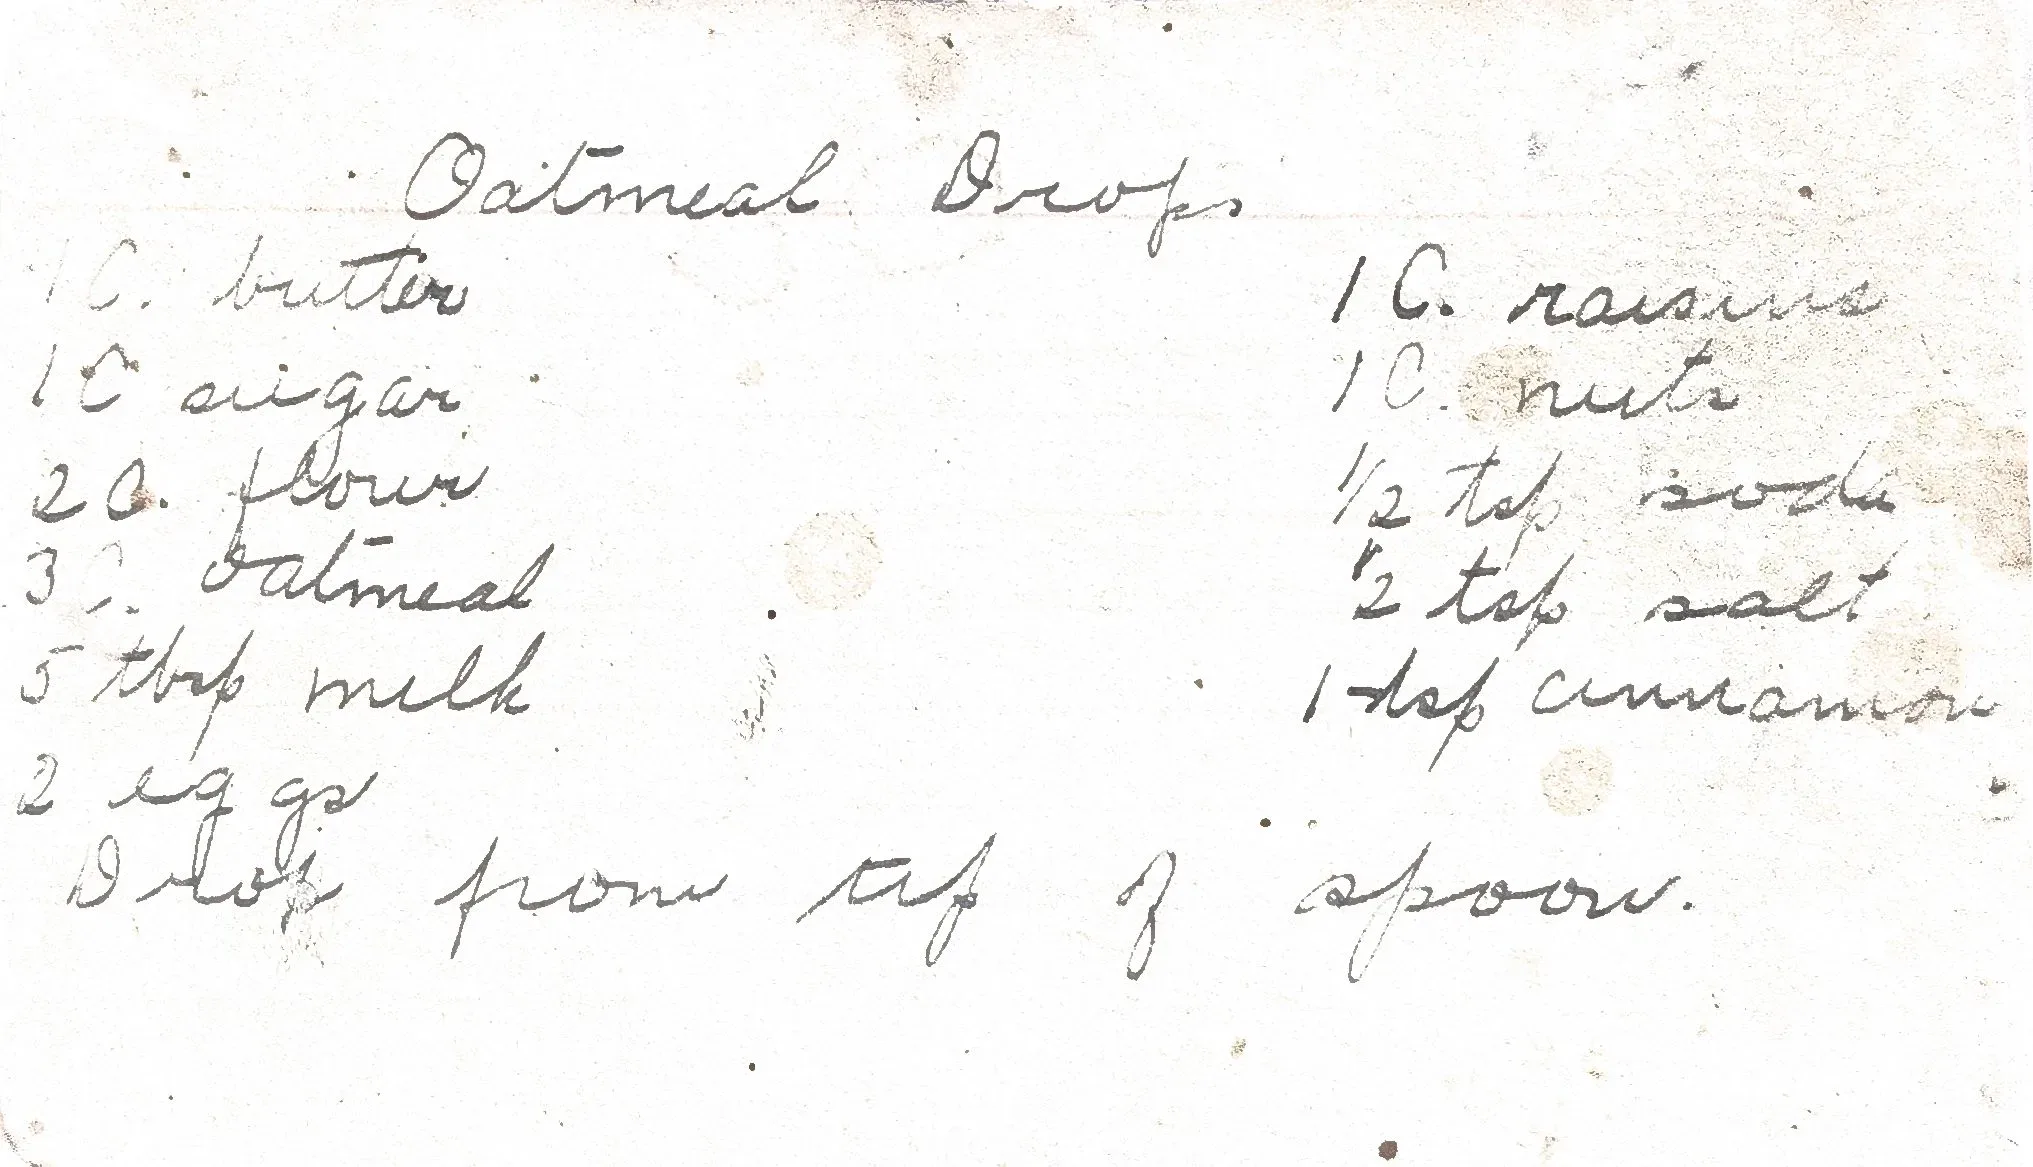 Oatmeal Drops
1 C. butter
1 C sugar
2 C. flour
3 C. oatmeal
5 tbsp milk
2 eggs
1 C. raisins
1 C. nuts
1/2 tsp soda
1/2 tsp salt
1 tsp cinnamon
Drop from tip of spoon.